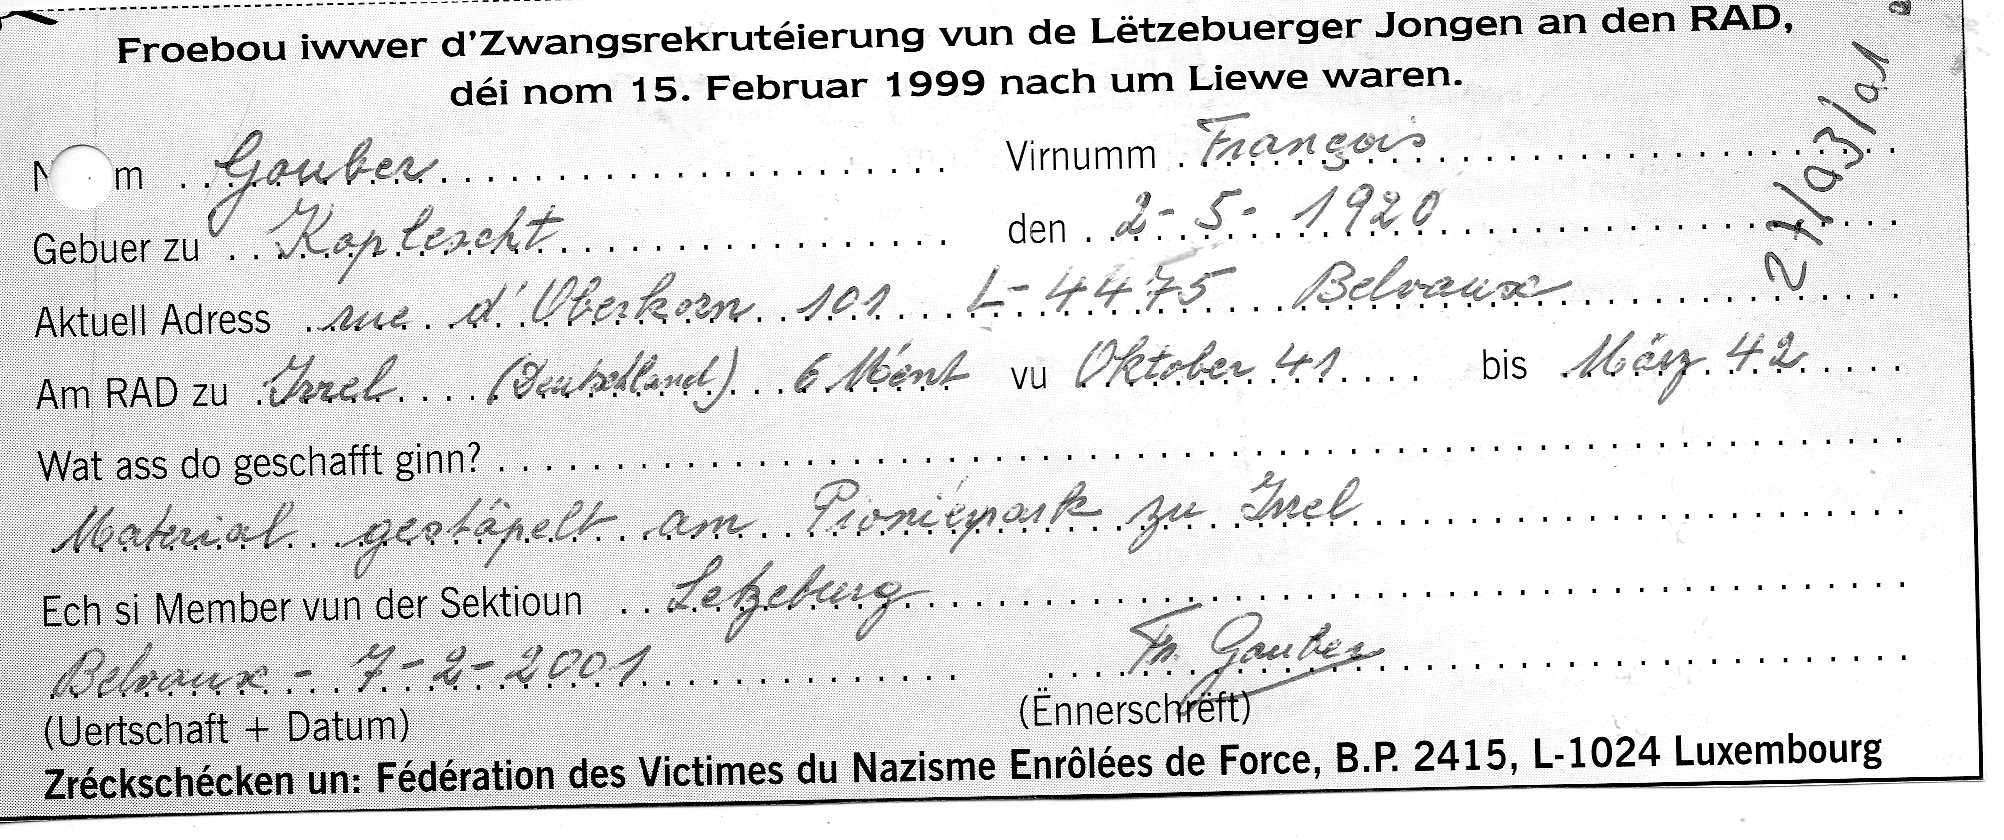 Froebou iwwer d'Zwangsrekrutéierung vun de Lëtzebuerger Jongen an den RAD,
déi nom 15. Februar 1999 nach um Liewe waren.
N m Gauber Virnumm François
Gebuer zu Koplescht den 2-5-1920
Aktuell Adress rue d'Oberkorn 101 L-4475 Belvaux
Am RAD zu Irrel (Deutschland) 6 Mént vu Oktober 41 bis März 42
Wat ass do geschafft ginn?
Material gestäpelt am Pionéierpark zu Irrel
Ech si Member vun der Sektioun Letzeburg
Belvaux - 7-2-2001 Fr. Gauber
(Uertschaft + Datum) (Ënnerschrëft)
Zréckschécken un: Fédération des Victimes du Nazisme Enrôlées de Force, B.P. 2415, L-1024 Luxembourg